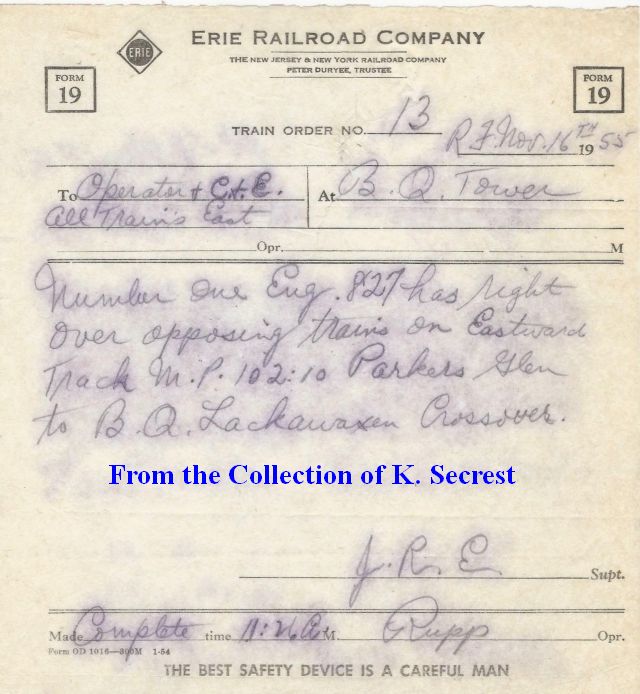 ERIE RAILROAD COMPANY
ERIE
THE NEW JERSEY & NEW YORK RAILROAD COMPANY
PETER DURYEE, TRUSTEE
FORM 19
FORM 19
TRAIN ORDER NO. 13
R.J. Nov. 16TH 1955
To Operator & C.&E. At B. Q. Tower
All Train's East
Opr. M
Number One Eng. 827 has right
over opposing trains on Eastward
Track M.P. 102:10 Parkers Glen
to B.Q. Lackawaxen Crossover.
From the Collection of K. Secrest
J. R. E. Supt.
Made Complete time 11:26 A M. Rupp Opr.
Form OD 1016—300M 1-54
THE BEST SAFETY DEVICE IS A CAREFUL MAN